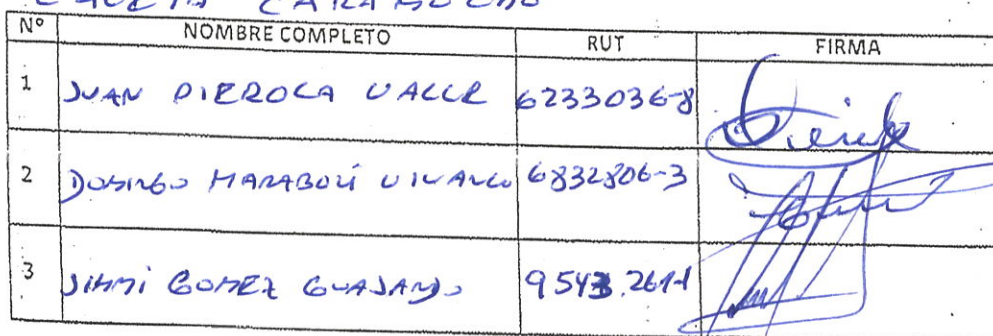 CALETA CARAMUCHO
Nº NOMBRE COMPLETO RUT FIRMA
1 JUAN PIEROLA VALLE 6233036-8
2 DOMINGO MARABOLÍ VIVANCO 6832806-3
3 JIMMI GOMEZ GUAJARDO